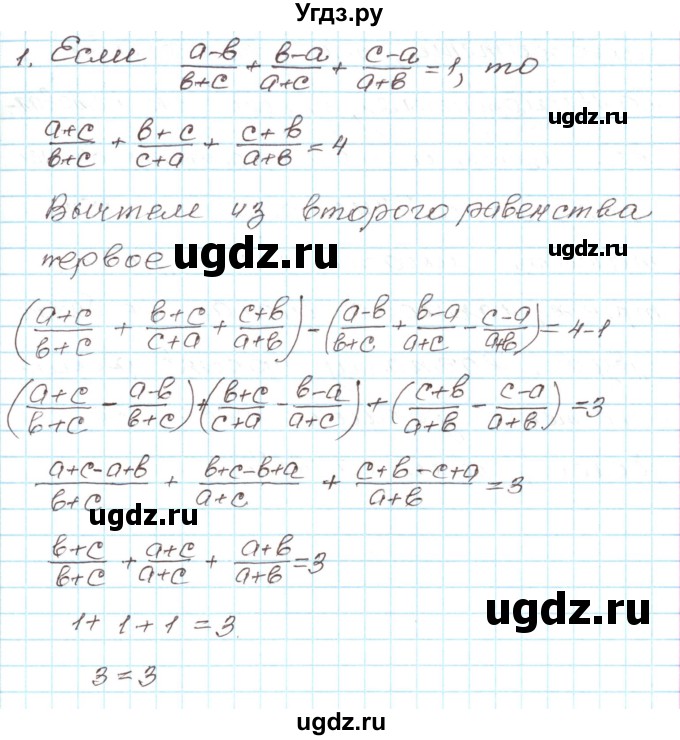 Угдз.ру
1. Если (a-b)/(b+c) + (b-a)/(a+c) + (c-a)/(a+b) = 1, то
ugdz.ru
(a+c)/(b+c) + (b+c)/(c+a) + (c+b)/(a+b) = 4
Вычтем из второго равенства
ugdz.ru
первое
ugdz.ru
((a+c)/(b+c) + (b+c)/(c+a) + (c+b)/(a+b)) - ((a-b)/(b+c) + (b-a)/(a+c) - (c-a)/(a+b)) = 4-1
((a+c)/(b+c) - (a-b)/(b+c)) + ((b+c)/(c+a) - (b-a)/(a+c)) + ((c+b)/(a+b) - (c-a)/(a+b)) = 3
(a+c-a+b)/(b+c) + (b+c-b+a)/(a+c) + (c+b-c+a)/(a+b) = 3
ugdz.ru
(b+c)/(b+c) + (a+c)/(a+c) + (a+b)/(a+b) = 3
ugdz.ru
1+1+1=3
ugdz.ru
3=3
ugdz.ru